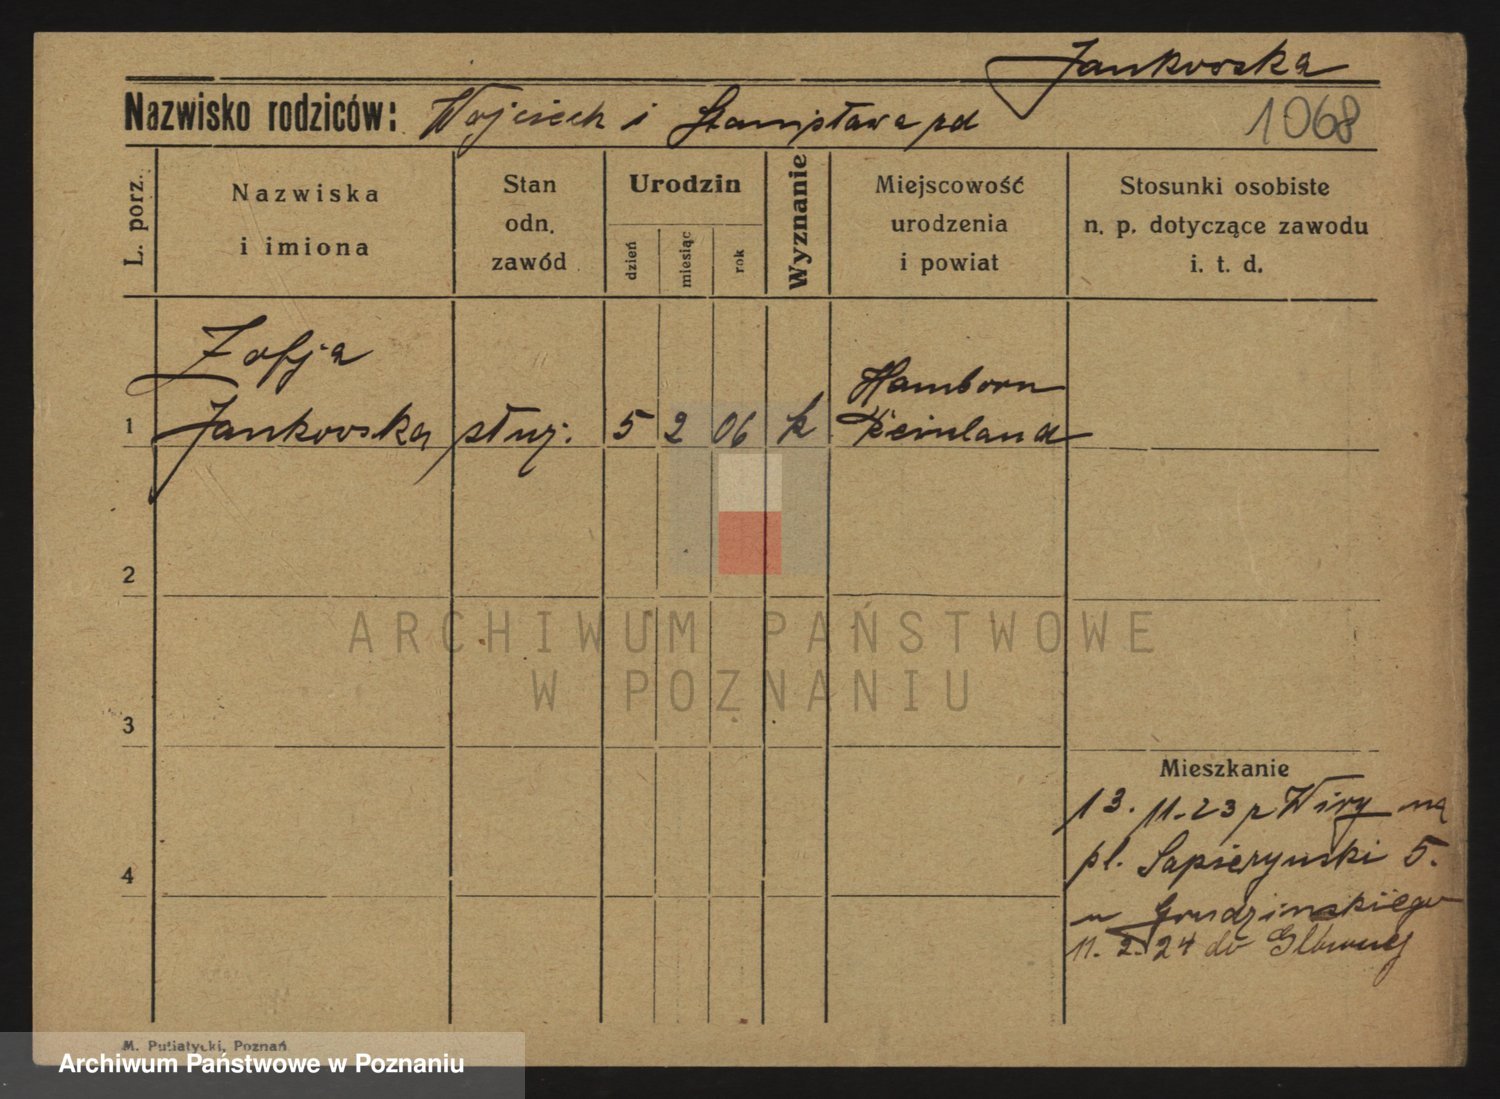 Jankowska
Nazwisko rodziców: Wojciech i Stanisława pd
1068
L. porz.
Nazwiska
i imiona
Stan
odn.
zawód
Urodzin
dzień
miesiąc
rok
Wyznanie
Miejscowość
urodzenia
i powiat
Stosunki osobiste
n. p. dotyczące zawodu
i. t. d.
Zofja
1 Jankowska służ. 5 2 06 k
Hamborn
Reinland
2
ARCHIWUM PAŃSTWOWE
W POZNANIU
3
Mieszkanie
13. 11. 23 z Wiry na
pl. Sapieżyński 5.
u Grudzinskiego
11. 2. 24 do Głównej
4
M. Putiatycki, Poznań
Archiwum Państwowe w Poznaniu